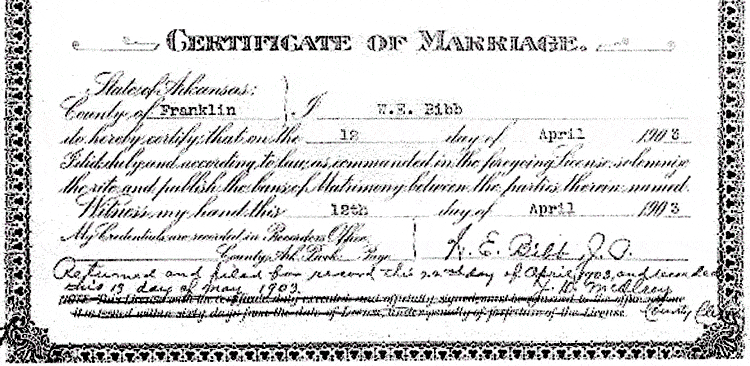 CERTIFICATE OF MARRIAGE.
State of Arkansas:
County of Franklin } I W.E. Bibb
do hereby certify, that on the 12 day of April 1903
I did, duly and according to law, as commanded in the foregoing License, solemnize
the rite and publish the bans of Matrimony between the parties therein named.
Witness, my hand this 12th day of April 1903
My Credentials are recorded in Recorders Office
County, Ark. Book Page W. E. Bibb, J.P.
Returned and filed for record this day of April, 1903, and recorded
this 13 day of May 1903.
NOTE This License with the certificate duly executed and officially signed must be returned to the office where
it is issued within sixty days from the date of License, under penalty of forfeiture of the License. County Clerk